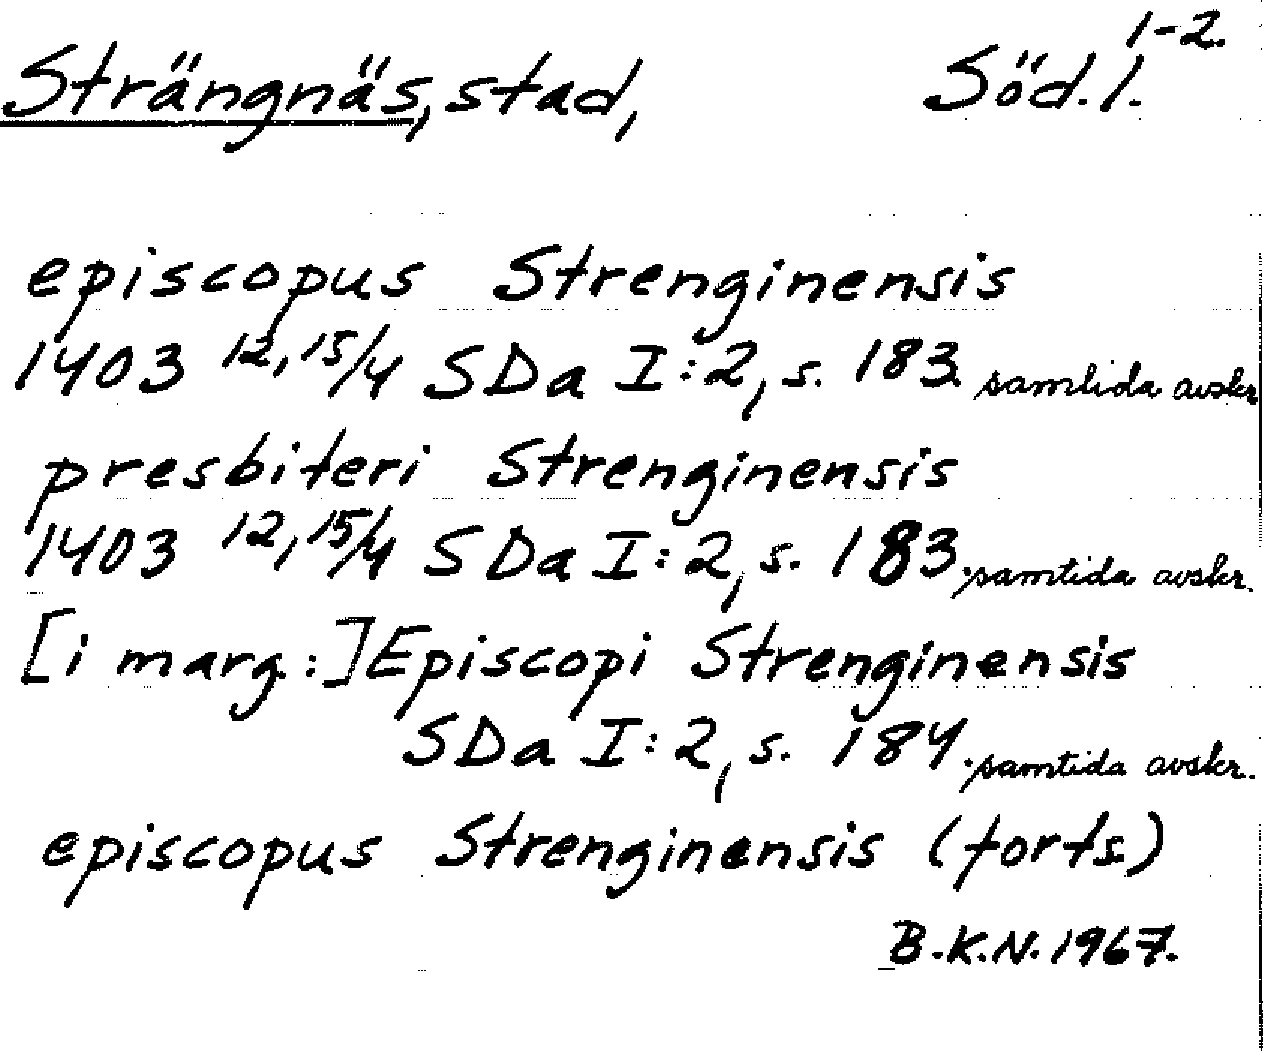 Strängnäs, stad, Söd. l. 1-2.
episcopus Strenginensis
1403 12, 15/4 SDa I:2, s. 183. samtida avskr
presbiteri Strenginensis
1403 12, 15/4 SDa I:2, s. 183. samtida avskr.
[i marg.:] Episcopi Strenginensis
SDa I:2, s. 184. samtida avskr.
episcopus Strenginensis (forts.)
B.K.N. 1967.